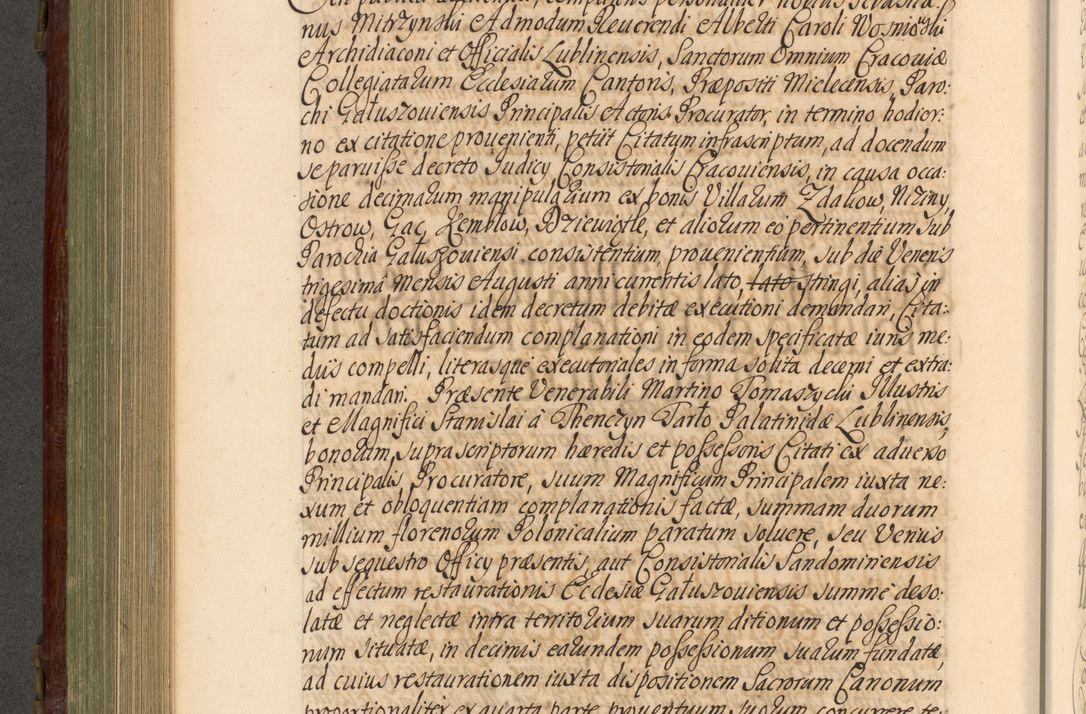 nus Mitrzynski Admodum Reuerendi Alberti Caroli Wosniowski
Archidiaconi et Officialis Lublinensis, Sanctorum Omnium Cracouiæ
Collegiatarum Ecclesiarum Cantoris, Præpositi Mielecensis, Paro:
chi Gałuszouiensis Principalis Actoris Procurator, in termino hodier:
no ex citatione prouenienti, petiit Citatum infrascriptum, ad docendum
se paruisse decreto Iudicÿ Consistorialis Cracouiensis, in causa occa:
sione decimarum manipularium ex bonis Villarum Zdakow, Niziny,
Ostrow, Gac, Kembłow, Dziewiątle, et aliorum eo pertinentium sub
Parochia Gałuszouiensi consistentium, prouenientium, sub die Veneris
trigesima Mensis Augusti anni currentis lato, lato stringi, alias in
defectu doctionis idem decretum debitæ executioni demandari, Cita:
tum ad satisfaciendum complanationi in eodem specificatæ iuris me:
diis compelli, literasque executoriales in forma solita decerni et extra:
di mandari. Præsente Venerabili Martino Tomaszycki Illustris
et Magnifici Stanislai à Thenczyn Tarło Palatinidæ Lublinensis,
bonorum, supra scriptorum hæredis et possessoris Citati ex aduerso
Principalis Procuratore, suum Magnificum Principalem iuxta ne:
xum et obloquentiam complanationis factæ, summam duorum
millium florenorum Polonicalium paratum soluere, seu Verius
sub sequestro Officÿ præsentis, aut Consistorialis Sandomiriensis
ad effectum restaurationis Ecclesiæ Gałuszouiensis summe deso:
latæ et neglectæ intra territorium suarum ditionum et possessio:
num situatæ, in decimis earundem possessionum suarum fundatæ,
ad cuius restaurationem iuxta dispositionem Sacrorum Canonum
proportionaliter ex quarta parte prouentuum suorum concurrere te: